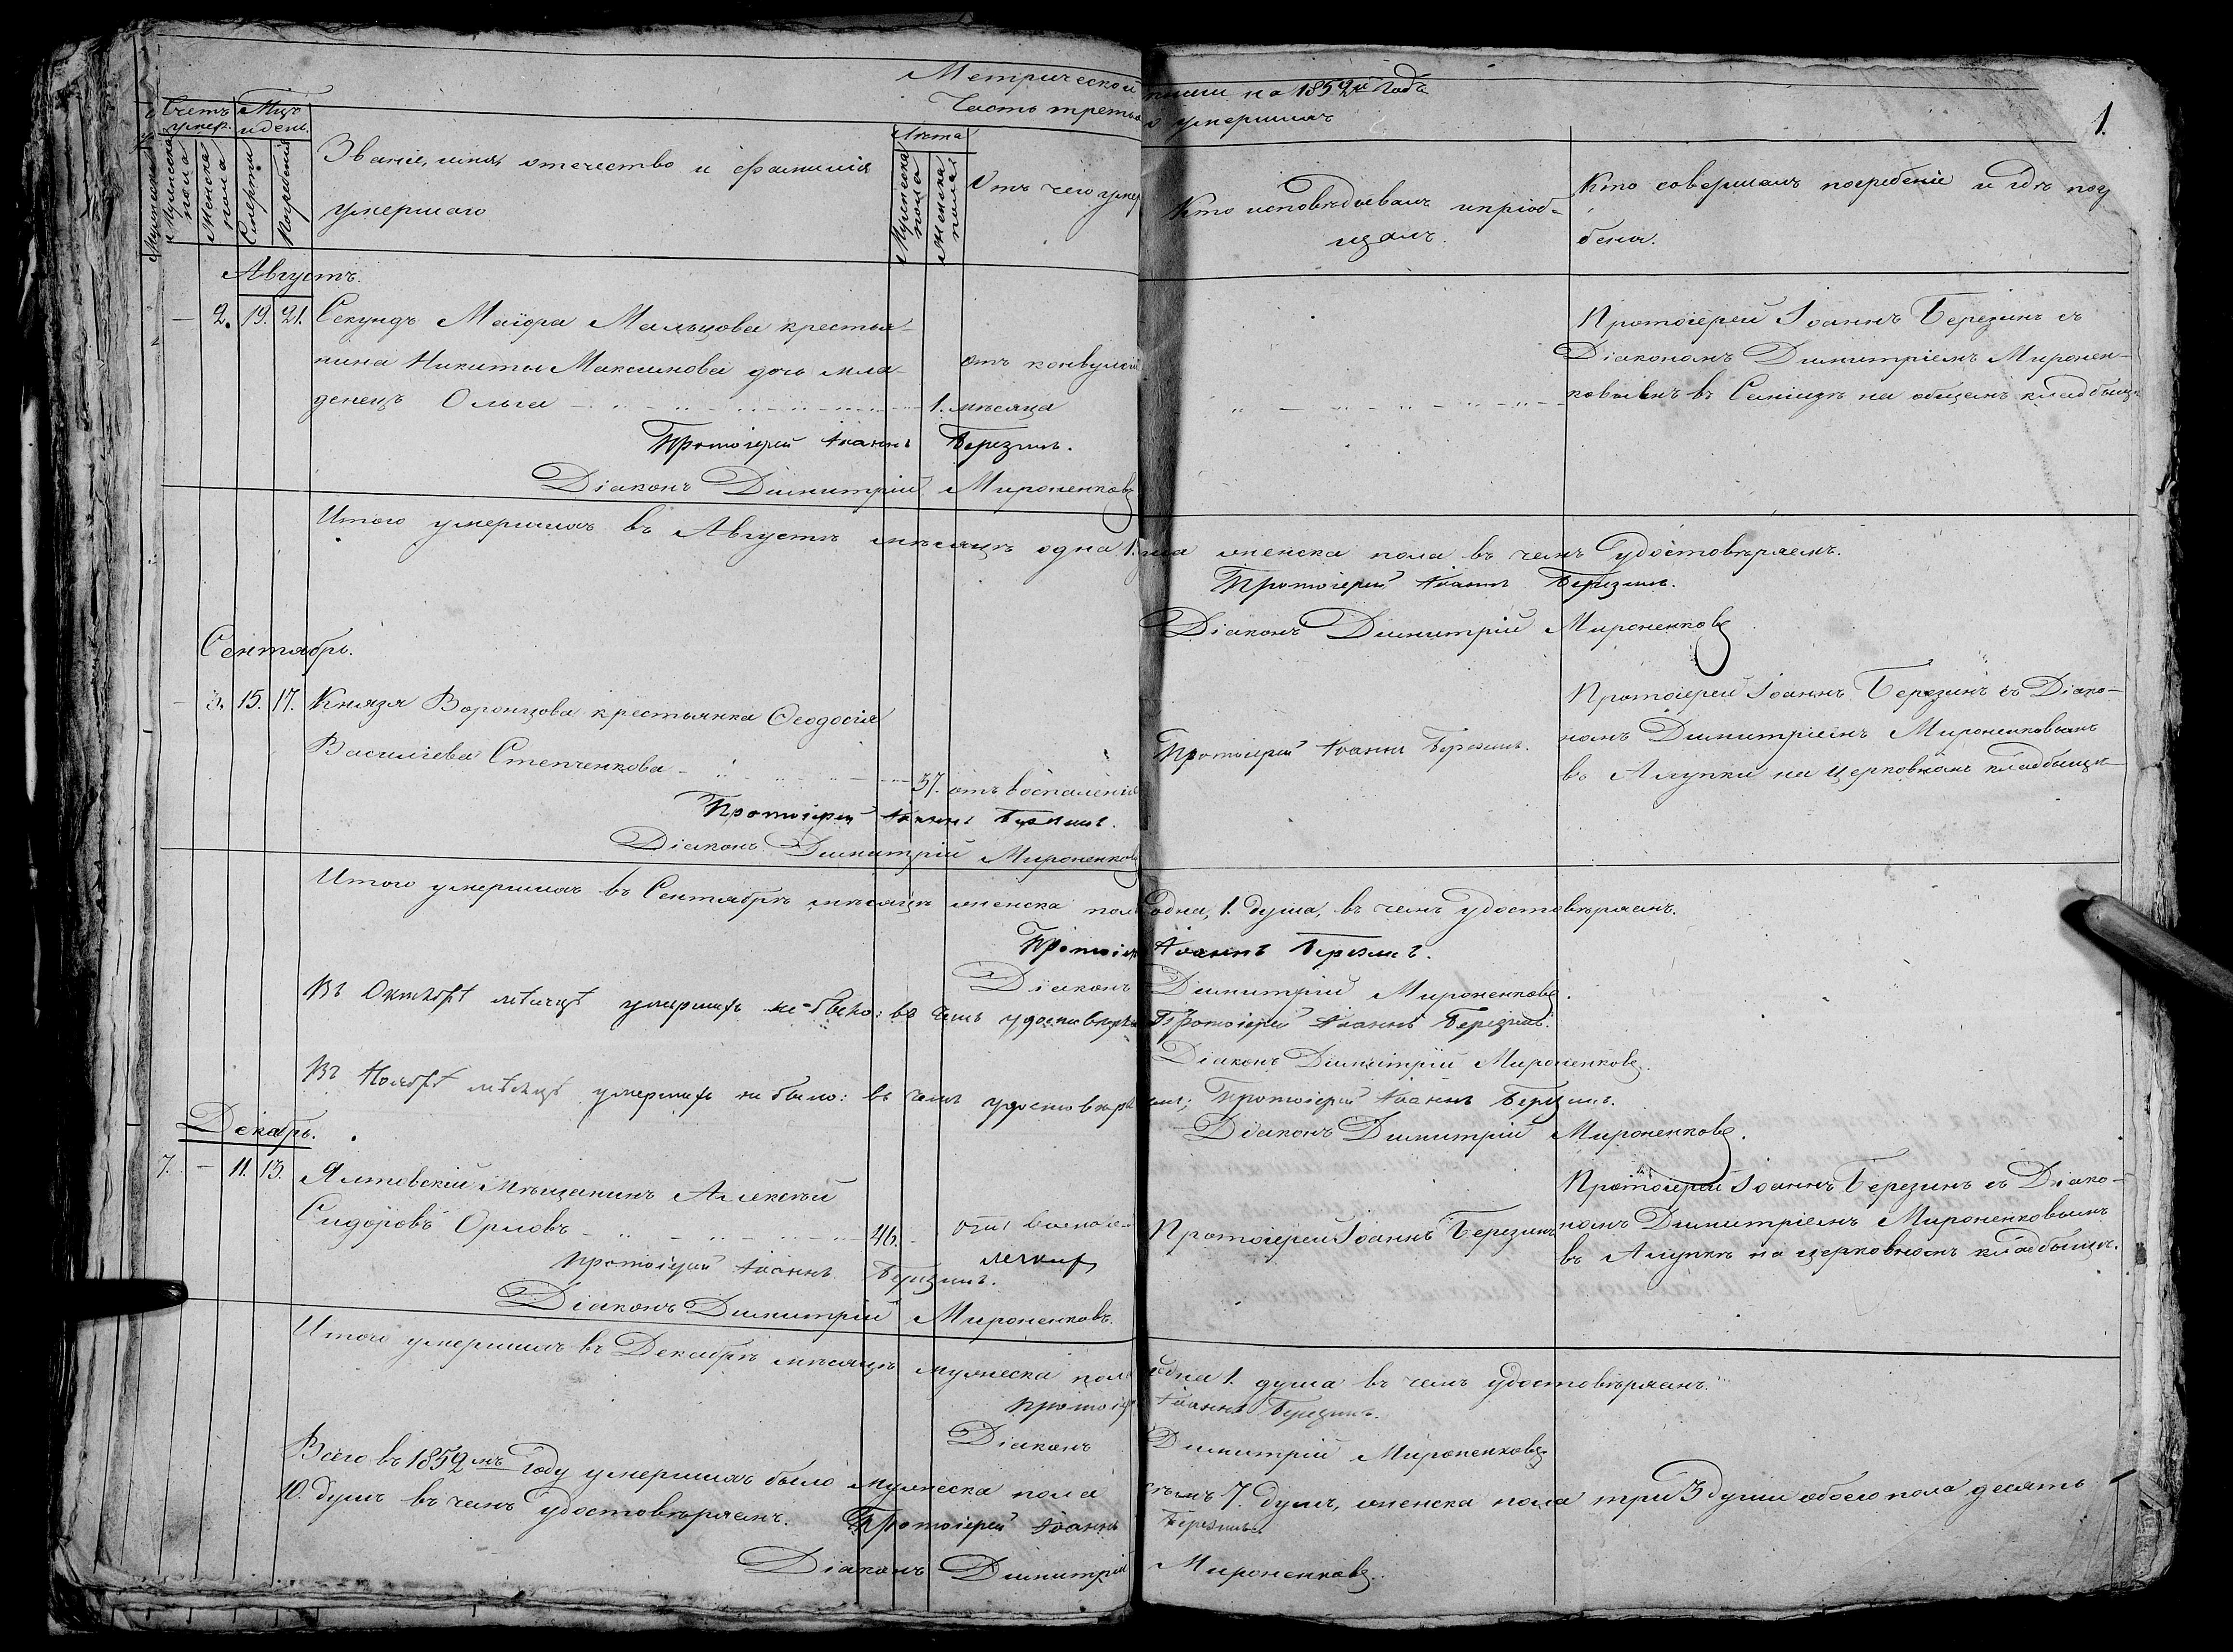 Метрической книги на 1852й Годъ
Часть третья о умершихъ
1.
Счетъ умер.
Мужеска пола
Женска пола
Мцъ и день.
Смерти
Погребенія
Званіе, имя, отечество и фамилія
умершаго
Лѣта
Мужеска пола
Женска пола
Отъ чего умер
Кто исповѣдывалъ и пріоб-
щалъ.
Кто совершалъ погребеніе и гдѣ погре
бены.
Августъ.
— 2. 19. 21. Секундъ Маіора Мальцова крестья-
нина Никиты Максимова дочь мла-
денецъ Ольга 1. мѣсяца
отъ конвулсіи
Протоіерей Іоаннъ Березинъ съ
Діакономъ Димитріемъ Миронен-
ковымъ въ Симіизѣ на общемъ кладбищѣ
Протоіерей Іоаннъ Березинъ.
Діаконъ Димитрій Мироненковъ
Итого умершихъ въ Августѣ мѣсяцѣ одна 1. душа женска пола въ чемъ удостовѣряемъ.
Протоіерей Іоаннъ Березинъ.
Діаконъ Димитрій Мироненковъ
Сентябрь.
— 3. 15. 17. Князя Воронцова крестьянка Ѳеодосія
Василіева Степченкова 37. отъ воспаленія
Протоіерей Іоаннъ Березинъ.
Протоіерей Іоаннъ Березинъ съ Діако-
номъ Димитріемъ Мироненковымъ
въ Алупки на церковномъ кладбищѣ
Протоіерей Іоаннъ Березинъ.
Діаконъ Димитрій Мироненковъ
Итого умершихъ въ Сентябрѣ мѣсяцѣ женска пола одна, 1. душа, въ чемъ удостовѣряемъ.
Протоіерей Іоаннъ Березинъ.
Діаконъ Димитрій Мироненковъ.
Въ Октябрѣ мѣсяцѣ умершихъ не было: въ чемъ удостовѣряемъ Протоіерей Іоаннъ Березинъ.
Діаконъ Димитрій Мироненковъ.
Въ Ноябрѣ мѣсяцѣ умершихъ не было: въ чемъ удостовѣряемъ; Протоіерей Іоаннъ Березинъ.
Діаконъ Димитрій Мироненковъ.
Декабрь.
7. — 11. 13. Ялтовскій Мѣщанинъ Алексѣй
Сидоровъ Орловъ 46. отъ воспале-
легкихъ
Протоіерей Іоаннъ Березинъ
Протоіерей Іоаннъ Березинъ съ Діако-
номъ Димитріемъ Мироненковымъ
въ Алупкѣ на церковномъ кладбищѣ.
Протоіерей Іоаннъ Березинъ.
Діаконъ Димитрій Мироненковъ.
Итого умершихъ въ Декабрѣ мѣсяцѣ мужеска пола одна 1. душа въ чемъ удостовѣряемъ.
Протоіерей Іоаннъ Березинъ.
Діаконъ Димитрій Мироненковъ
Всего въ 1852мъ Году умершихъ было мужеска пола семъ 7. душъ, женска пола три 3 души обоего пола десять
10. душъ въ чемъ удостовѣряемъ. Протоіерей Іоаннъ Березинъ.
Діаконъ Димитрій Мироненковъ.